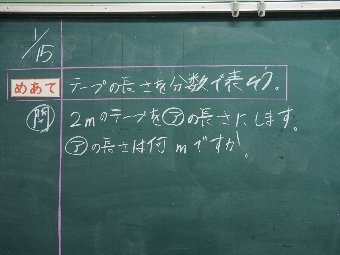 1/15
めあて テープの長さを分数で表そう。
問 2mのテープを㋐の長さにします。
㋐の長さは何mですか。